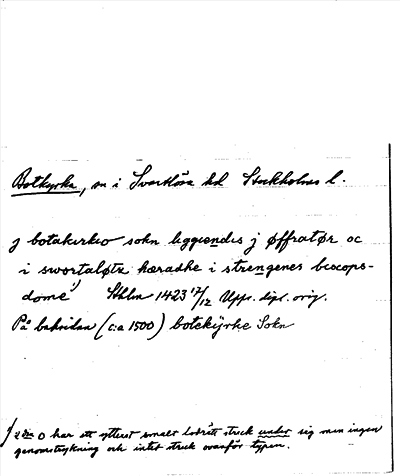 Botkyrka, sn i Svartlösa hd Stockholms l.
j botakirkio sokn liggiendis j øffratør oc
i swortaløtz hæradhe i strengenes biscops-
døme 1) Sthlm 1423 17/12 Uppr. dipl. orig.
På baksidan (c:a 1500) botekyrke Sokn
1) 2 o har ett ytterst smalt lodrätt streck under sig men ingen
genomstrykning och intet streck ovanför typen.